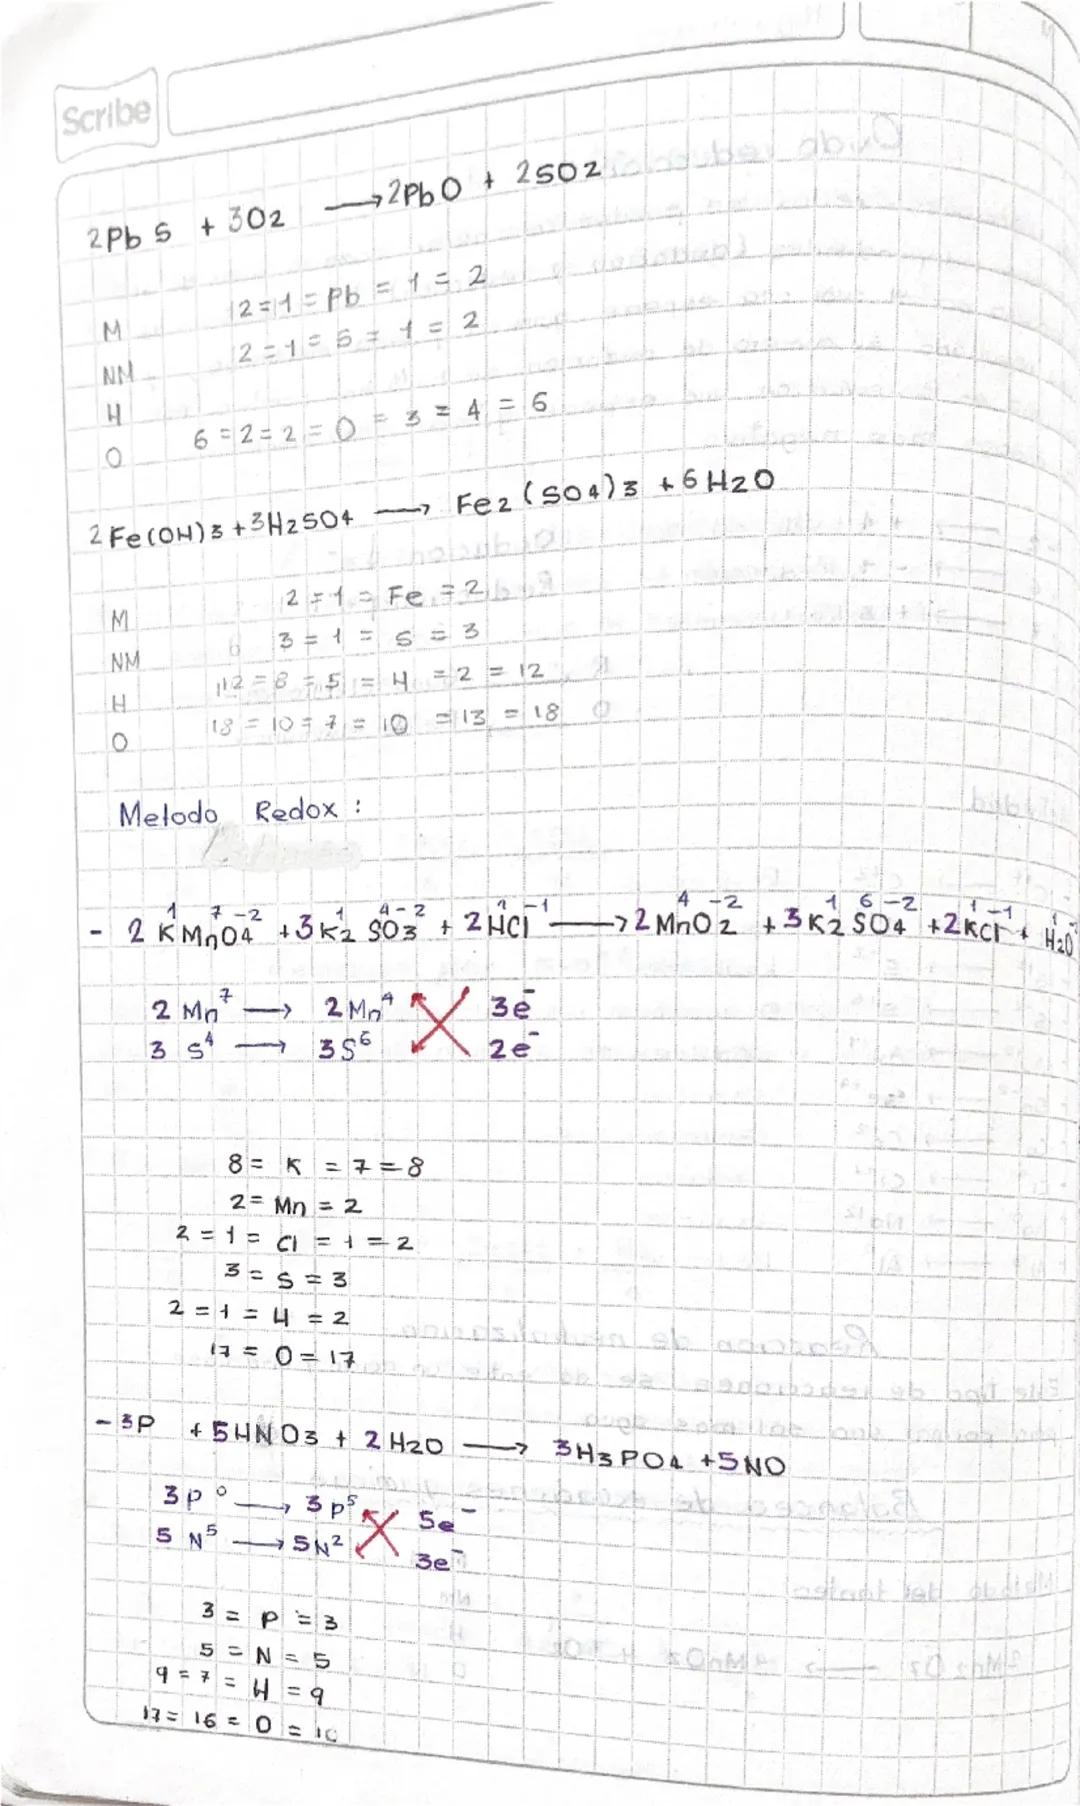 Scribe
2PbS + 3O2 → 2PbO + 2SO2
M 2=1=Pb=1=2
NM 2=1=S=1=2
H
O 6=2=2=O=3=4=6
2Fe(OH)3+3H2SO4 → Fe2(SO4)3 +6H2O
M 2=1=Fe=2
NM 3=1=S=3
H 12=8=5=H=2=12
O 18=10=7=10=13=18
Melodo Redox:
1 7 -2 1 4-2 1 -1 4 -2 1 6-2 1 -1 1
- 2KMnO4 +3K2SO3 + 2HCl → 2MnO2 +3K2SO4 +2KCl + H2O
2Mn7 → 2Mn4 3e-
3S4 → 3S6 2e-
8=K=7=8
2=Mn=2
2=1=Cl=1=2
3=S=3
2=1=H=2
17=O=17
-3P +5HNO3+2H2O → 3H3PO4+5NO
3P0 → 3P5 5e-
5N5 → 5N2 3e-
3=P=3
5=N=5
9=7=H=9
17=16=O=